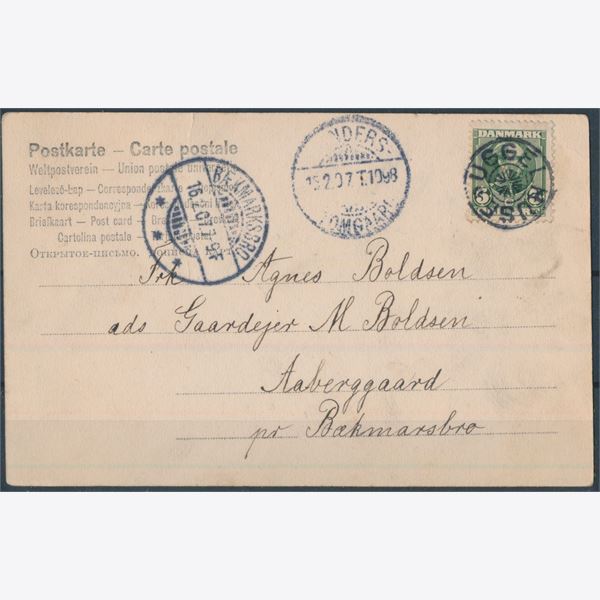 Postkarte — Carte postale
Weltpostverein — Union postale universelle
Levelező-Lap — Correspondenzkarte
Karta korespondencyjna
Briefkaart — Post card
Cartolina postale
Открытое-письмо.
DANMARK
5
BUSSE
BÆKMARKSBRO
16.2.07
NDERS-
15.2.07 T.1098
OMGAARD
Frk Agnes Boldsen
ads Gaardejer M Boldsen
Aaberggaard
pr Bækmarsbro